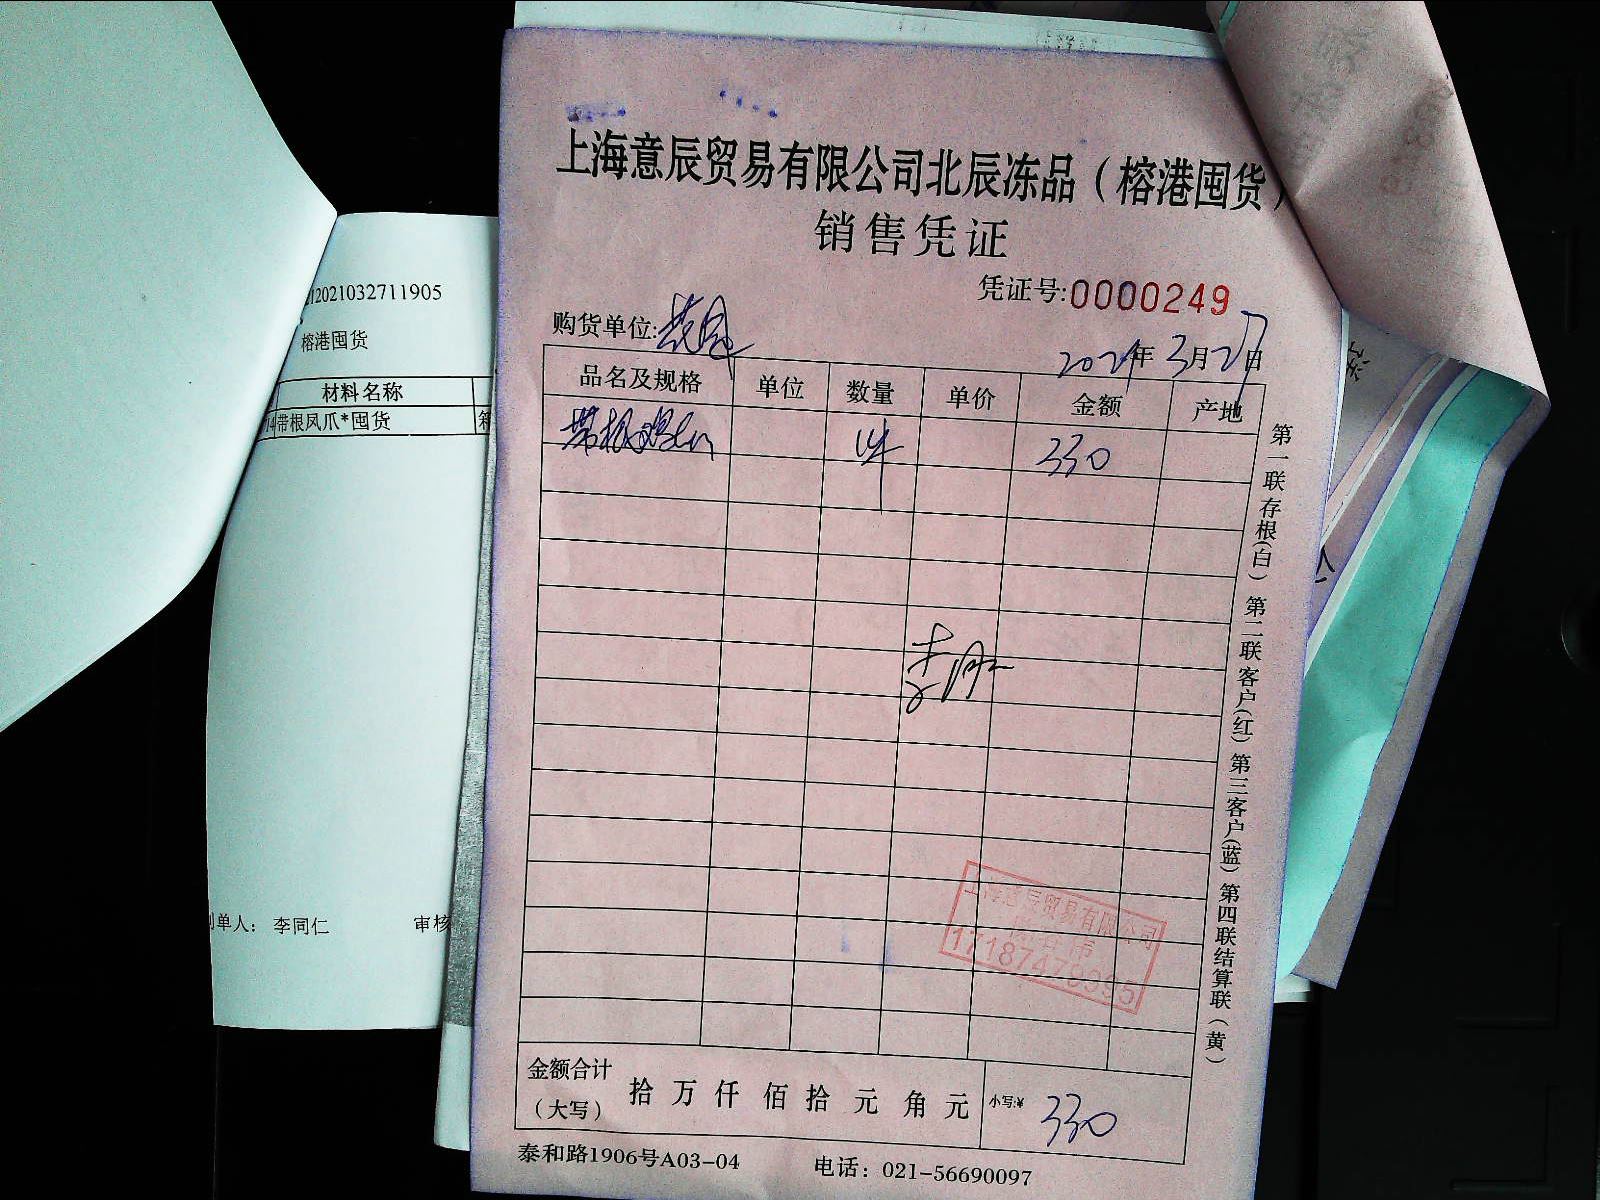 上海意辰贸易有限公司北辰冻品（榕港囤货）
销售凭证
凭证号:0000249
购货单位:
2021年3月27日
品名及规格 单位 数量 单价 金额 产地
带根 330
第一联存根(白) 第二联客户(红) 第三客户(蓝) 第四联结算联(黄)
李
上海意辰贸易有限公司
金额合计（大写） 拾 万 仟 佰 拾 元 角 元 小写:¥ 330
泰和路1906号A03-04 电话：021-56690097
2021032711905
榕港囤货
材料名称
带根凤爪*囤货
制单人： 李同仁 审核